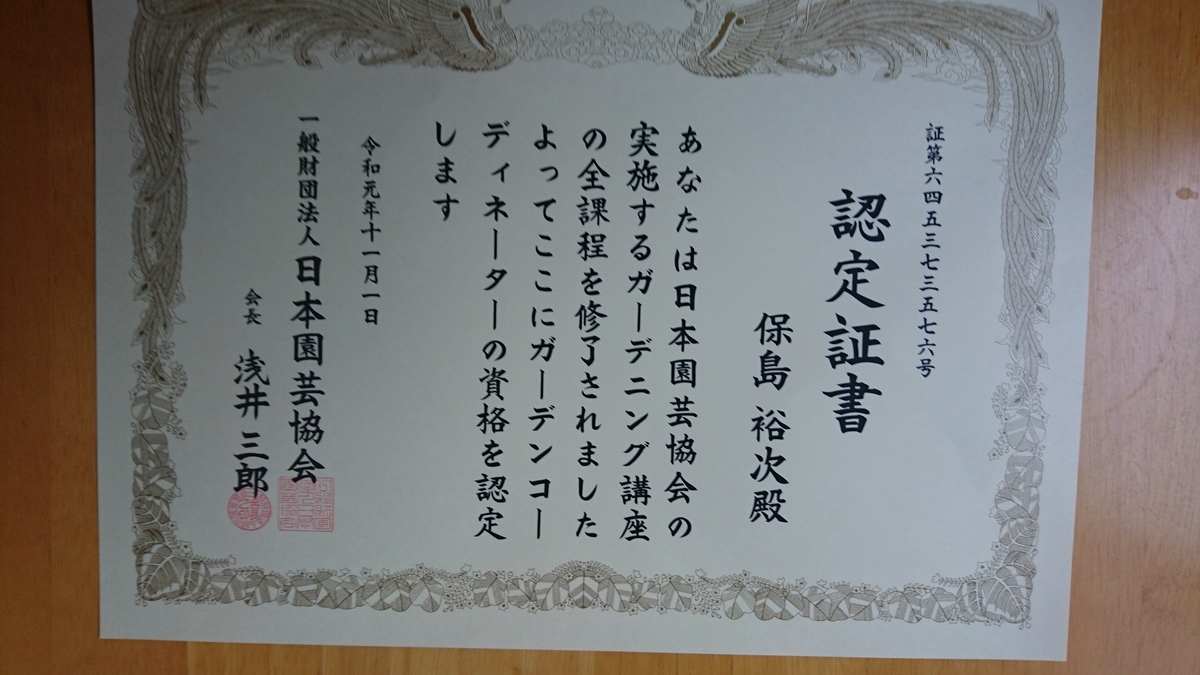 証第六四五三七三五七六号
認定証書
保島 裕次殿
あなたは日本園芸協会の
実施するガーデニング講座
の全課程を修了されました
よってここにガーデンコー
ディネーターの資格を認定
します
令和元年十一月一日
一般財団法人 日本園芸協会
会長 浅井三郎